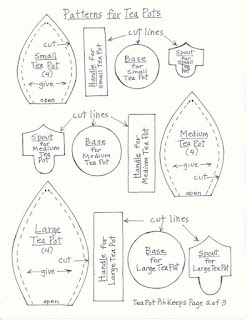 Patterns for Tea Pots
cut
Small
Tea Pot
(4)
give
open
Handle for
Small Tea Pot
cut lines
Base
for
Small
Tea Pot
Spout
for
Small
Tea
Pot
cut lines
Spout
for
Medium
Tea
Pot
Base
for
Medium
Tea Pot
Handle for
Medium Tea Pot
Medium
Tea Pot
(4)
give
cut
open
Large
Tea Pot
(4)
cut
give
open
Handle for
Large Tea Pot
cut lines
Base
for
Large Tea Pot
Spout
for
Large Tea Pot
Tea Pot Pin Keeps Page 2 of 3